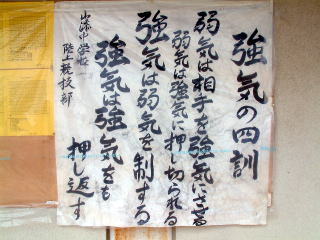 強気の四訓
弱気は相手を強気にさせる
弱気は強気に押し切られる
強気は弱気を制する
強気は強気をも
押し返す
中学校
陸上競技部